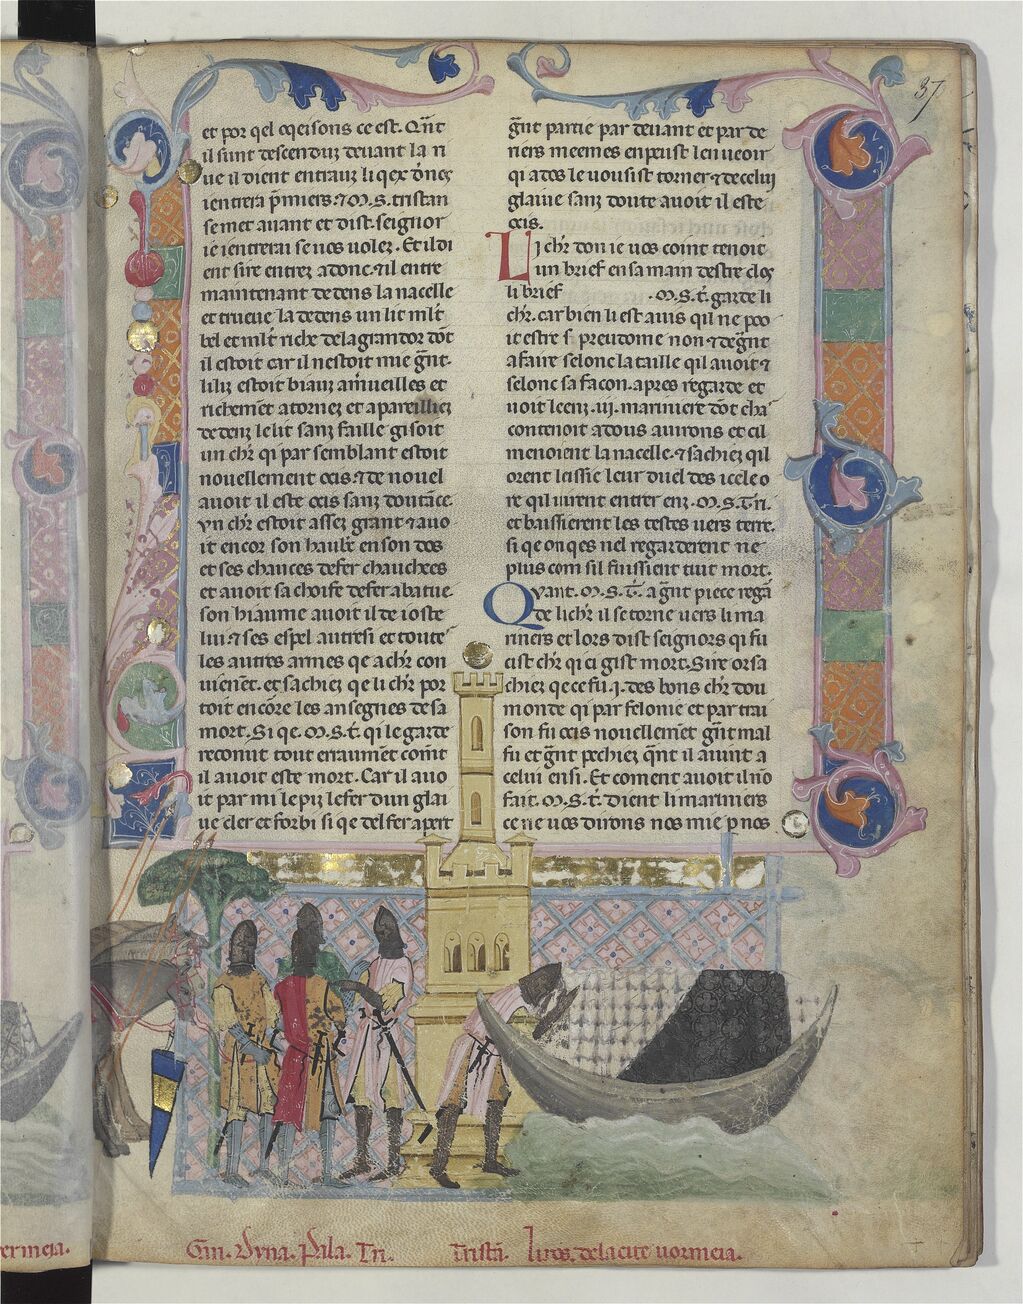 37
et por qel oqeisons ce est. Qñt
il sunt descenduz deuant la n
ue il dient entraus li qex dõnes
ientrera p̃miers. ⁊ .M.S. tristan
se met auant et dist. seignor
ie ientrerai se uos uolez. Et il di
ent sire entrez adonc. ⁊ il entre
maintenant dedens la nacelle
et trueue la dedens un lit ml̃t
bel et ml̃t riche de la grandor dõt
il estoit car il nestoit mie gñt.
li liz estoit biaus a m̃ueilles et
richemẽt atornez et apareilliez
dedenz le lit sanz faille gisoit
un chr̃ qi par semblant estoit
nouellement ocis. ⁊ de nouel
auoit il este ocis sanz doutãce
vn chr̃ estoit assez grant ⁊ auo
it encor son haubr̃ en son dos
et ses chauces de fer chauchees
et auoit sa choife de fer abatue
son hiaume auoit il de ioste
lui ⁊ ses espei autresi et toute
les autres armes qe a chr̃ con
uienẽt. et sachiez qe li chr̃ por
toit encore les ansegnes de sa
mort. Si qe .M.S.t̃. qi le garde
reconut tout erraumẽt comt̃
il auoit este mort. Car il auo
it par mi le piz le fer dun glai
ue cler et forbi si qe del fer apert
gñt partie par deuant et par de
riers meemes en peust len ueoir
qi ades le uousist torner ⁊ de celui
glaiue sanz doute auoit il este
ocis.
Li chr̃ don ie uos coint tenoit
un brief en sa main destre clos
li brief .M.S.t̃. garde li
chr̃. car bien li est auis qil ne poo
it estre s̃ preudome non ⁊ de gñt
afaire selonc la taille qil auoit ⁊
selonc sa facon. apres regarde et
uoit leenz .iii. mariniere dõt chã
contenoit adous auirons et cil
menoient la nacelle. ⁊ sachiez qil
orent leissie leur duel des icele o
re qil uirent entrer enz .M.S.Tri.
et baissierent les testes uers terre.
si qe onqes nel regarderent ne
plus com sil fuissient tuit mort.
Qvant .M.S.T̃. a gñt piece regã
de li chr̃ il se torne uers li ma
riners et lors dist seignors qi fu
cist chr̃ qi ci gist mort. Sire or sa
chiez qe ce fu .i. des bons chr̃ dou
monde qi par felonie et par trai
son fu ocis nouellemẽt gñt mal
fu et gñt pechiez qñt il auint a
celui ensi. Et coment auoit il nõ
fait .M.S.t̃. dient li mariniers
ce ne uos dirons nos mie p nos
ermeia.
Gin. Dyna. Pala. Tri. Tristã. li uos de la cite uormeia.